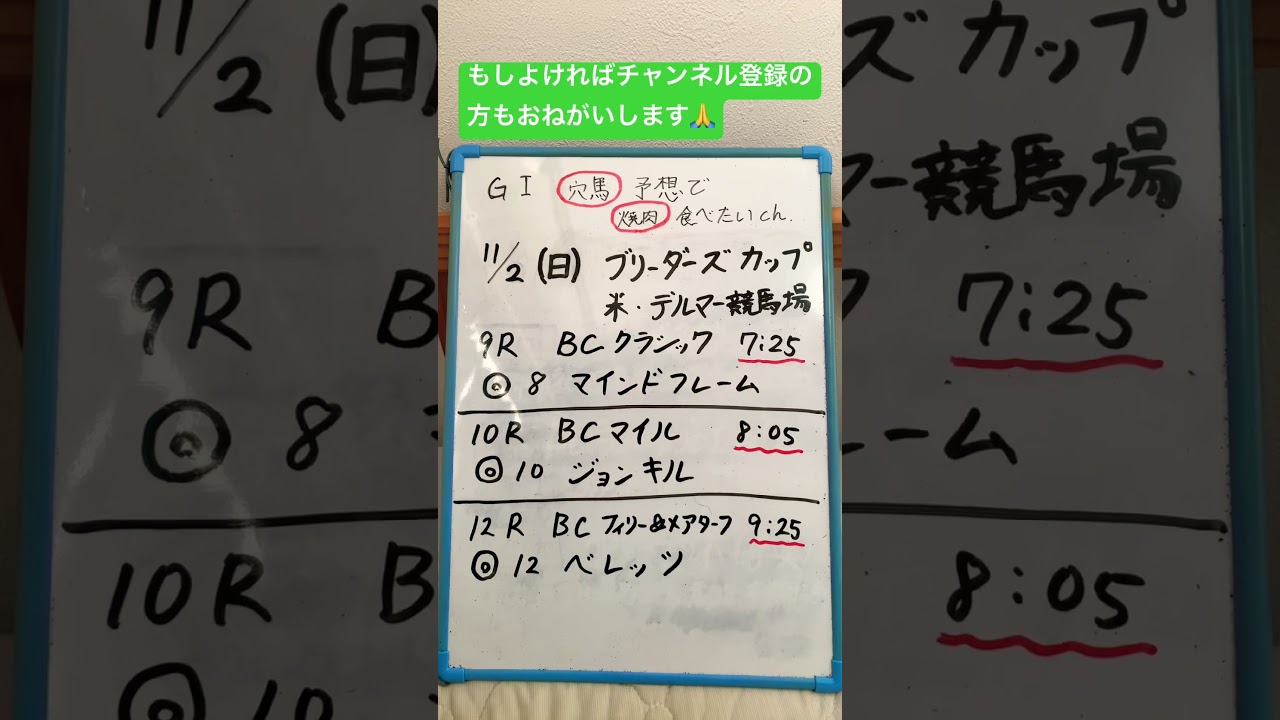 もしよければチャンネル登録の
方もおねがいします🙏
GI 穴馬 予想で
焼肉 食べたいch.
11/2(日) ブリーダーズカップ
米・デルマー競馬場
9R BCクラシック 7:25
◎ 8 マインドフレーム
10R BCマイル 8:05
◎ 10 ジョンキル
12R BCフィリー&メアターフ 9:25
◎ 12 ベレッツ